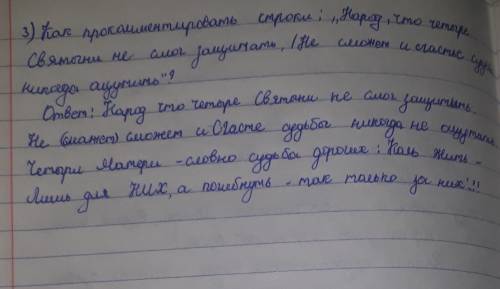 3) Как прокомментировать строки: „Народ, что четыре
Святыни не смог защитить, / Не сможет и счастье
никогда ощутить"?
Ответ: Народ что четыре Святыни не смог защитить.
Не (может) сможет и Счастье судьбы никогда не
Четыри Матери - словно судьба дороших: Коль жить -
Лишь для НИХ, а погибнуть - так только за них!!!